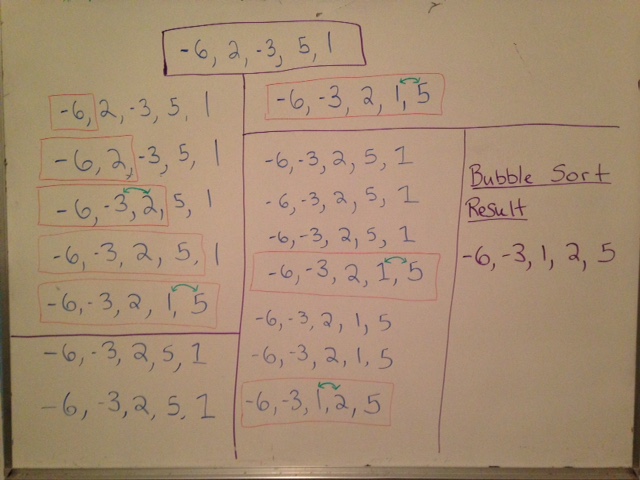 -6, 2, -3, 5, 1
-6, 2, -3, 5, 1
-6, 2, -3, 5, 1
-6, -3, 2, 5, 1
-6, -3, 2, 5, 1
-6, -3, 2, 1, 5
-6, -3, 2, 5, 1
-6, -3, 2, 5, 1
-6, -3, 2, 1, 5
-6, -3, 2, 5, 1
-6, -3, 2, 5, 1
-6, -3, 2, 5, 1
-6, -3, 2, 1, 5
-6, -3, 2, 1, 5
-6, -3, 2, 1, 5
-6, -3, 1, 2, 5
Bubble Sort
Result
-6, -3, 1, 2, 5